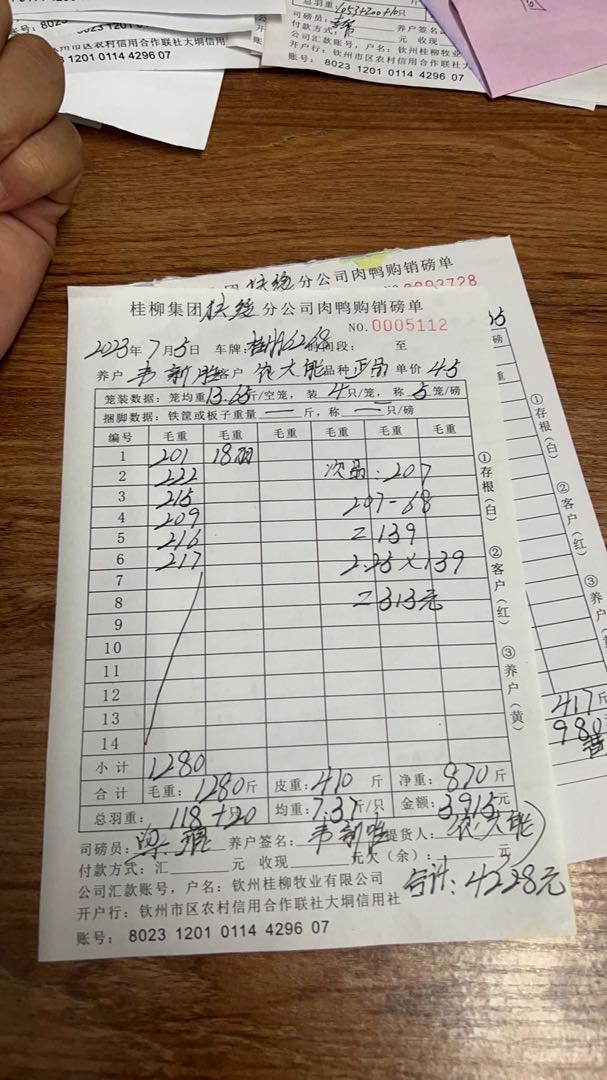 总羽重：1053+200+10只
司磅员： 养户签名
付款方式： 元 收现
公司汇款账号，户名：钦州桂柳牧业
开户行：钦州市区农村信用合作联社大垌信用
账号：8023 1201 0114 4296 07
钦州市区农村信用合作联社大垌信用
8023 1201 0114 4296 07
分公司肉鸭购销磅单
0003728
桂柳集团 分公司肉鸭购销磅单
NO.0005112
2023年7月5日 车牌： 时间段： 至
养户 韦新胜 客户 农大能 品种 正品 单价 4.5
笼装数据：笼均重13.65斤/空笼，装4只/笼，称5笼/磅
捆脚数据：铁筐或板子重量—斤，称—只/磅
编号 毛重 毛重 毛重 毛重 毛重 毛重
1 201 18羽
2 222 次品：207
3 215 207-68
4 209 =139
5 216 2.25×139
6 217 =313元
7
8
9
10
11
12
13
14
小计 1280
合计 毛重：1280斤 皮重：410斤 净重：870斤
总羽重：118+20 均重：7.37斤/只 金额：3915元
司磅员： 养户签名：韦新胜 提货人：农大能
付款方式：汇 元 收现 元欠（余）： 元
合计：4228元
公司汇款账号，户名：钦州桂柳牧业有限公司
开户行：钦州市区农村信用合作联社大垌信用社
账号：8023 1201 0114 4296 07
①存根（白） ②客户（红） ③养户（黄）
磅
重
①存根（白） ②客户（红） ③养户
417斤
980